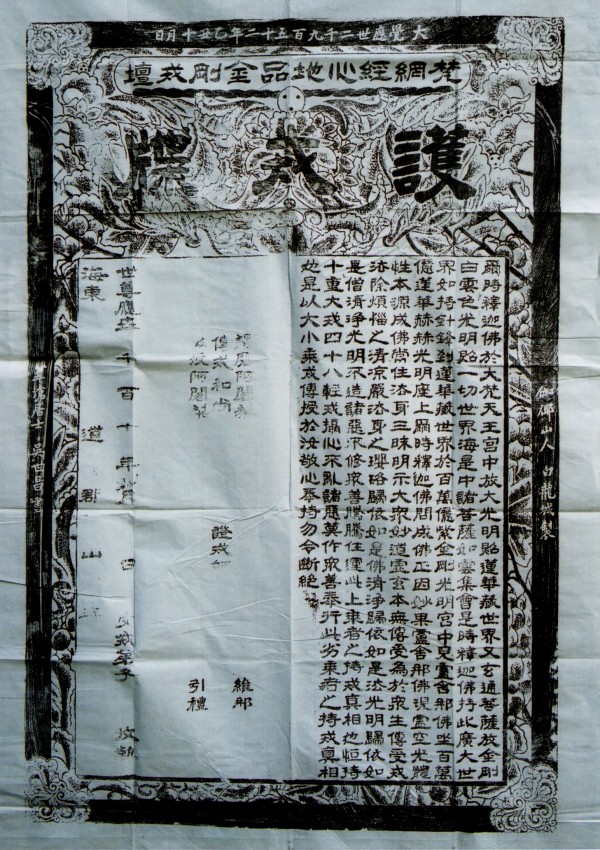 大覺應世二千九百五十二年乙丑十月日
梵網經心地品金剛戒壇
護戒牒
爾時釋迦佛於大梵天王宮中放大光明照蓮華藏世界又玄通菩薩放金剛
白雲色光明照一切世界海是中諸菩薩如雲集會是時釋迦佛持此廣大世
界如持針鋒到蓮華藏世界於百萬億紫金剛光明宮中見盧舍那佛坐百萬
億蓮華赫赫光明座上爾時釋迦佛問成佛正因妙果盧舍那佛現虛空光體
性本源成佛常住法身三昧明示大衆妙道靈玄本無傳受為於衆生傳受戒
法除煩惱之清凉嚴法身之瓔珞歸依如是佛清淨歸依如是法光明歸依如
是僧清淨光明不造諸惡不修衆善騰騰任運此上乘者之持戒真相也恒持
十重大戒四十八輕戒攝心不亂諸惡莫作衆善奉行此劣乘者之持戒真相
也是以大小乘戒傳授於汝敬心奉持勿令斷絕
阿闍梨
傳戒和尚
阿闍梨
證戒師
維那
引禮
世尊應世 千百十年 月 日 受戒弟子
海東 道 郡 山 寺
山人 白龍 製
居士 吳 昌 書